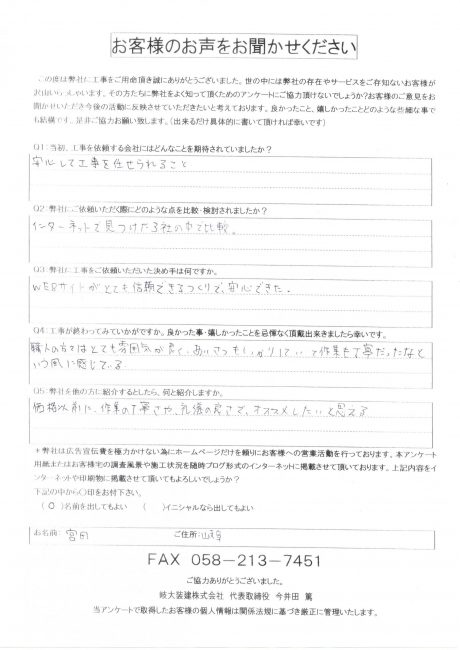 お客様のお声をお聞かせください
この度は弊社に工事をご用命頂き誠にありがとうございました。世の中には弊社の存在やサービスをご存知ないお客様が
沢山いらっしゃいます。その方たちに弊社をよく知って頂くためのアンケートにご協力頂けないでしょうか?お客様のご意見をお
聞かせいただき今後の活動に反映させていただきたいと考えております。良かったこと、嬉しかったことどのような些細な事で
も結構です。是非ご協力お願い致します。(出来るだけ具体的に書いて頂ければ幸いです)
Q1:当初、工事を依頼する会社にはどんなことを期待されていましたか?
安心して工事を任せられること
Q2:弊社にご依頼いただく際にどのような点を比較・検討されましたか?
インターネットで見つけた3社の中で比較。
Q3:弊社に工事をご依頼いただいた決め手は何ですか。
WEBサイトがとても信頼できるつくりで、安心できた。
Q4:工事が終わってみていかがですか。良かった事・嬉しかったことを忌憚なく頂戴出来きましたら幸いです。
職人の方々はとても雰囲気が良く、あいさつもしっかりしていて作業も丁寧だったなと
いう風に感じている
Q5:弊社を他の方に紹介するとしたら、何と紹介しますか。
価格以前に、作業の丁寧さや、礼儀の良さで、オススメしたいと思える
*弊社は広告宣伝費を極力かけない為にホームページだけを頼りにお客様への営業活動を行っております。本アンケート
用紙またはお客様宅の調査風景や施工状況を随時ブログ形式のインターネットに掲載させて頂いております。上記内容をイ
ンターネットや印刷物に掲載させて頂いてもよろしいでしょうか?
下記の中から〇印をお付下さい。
(〇)名前を出してもよい ( )イニシャルなら出してもよい
お名前: 宮田 ご住所:山県
FAX 058-213-7451
ご協力ありがとうございました。
岐大装建株式会社 代表取締役 今井田 篤
当アンケートで取得したお客様の個人情報は関係法規に基づき厳正に管理いたします。